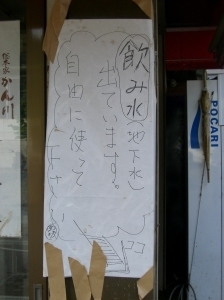 飲み水(地下水)
出ています。
自由に使って
下さい
POCARI